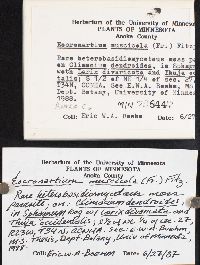 Herbarium of the University of Minnesota
PLANTS OF MINNESOTA
Anoka County
Eocronartium muscicola (Fr.) Fitz.
Rare heterobasidiomycetous moss
ex Climacium dendroides, in Sphagnum
with Larix divaricata and Thuja
S ½ of NE ¼ of sec. 27,
T34N, See E.W.A. Boehm, M.S.
Dept. Botany, University of Minnesota
1988.
MIN
Coll: Eric W.A. Boehm Date: 6/27
Herbarium of the University of Minnesota
PLANTS OF MINNESOTA
Anoka County
Eocronartium muscicola (Fr.) Fitz.
Rare heterobasidiomycetous moss
parasite on: Climacium dendroides
in Sphagnum bog w/ Larix divaricata and
Thuja occidentalis; S ½ of NE ¼ of sec. 27,
T34N, See: Eric W.A. Boehm,
M.S. Thesis, Dept. Botany, Univ. of Minnesota,
1988
Coll: Eric W.A. Boehm Date: 6/27/87